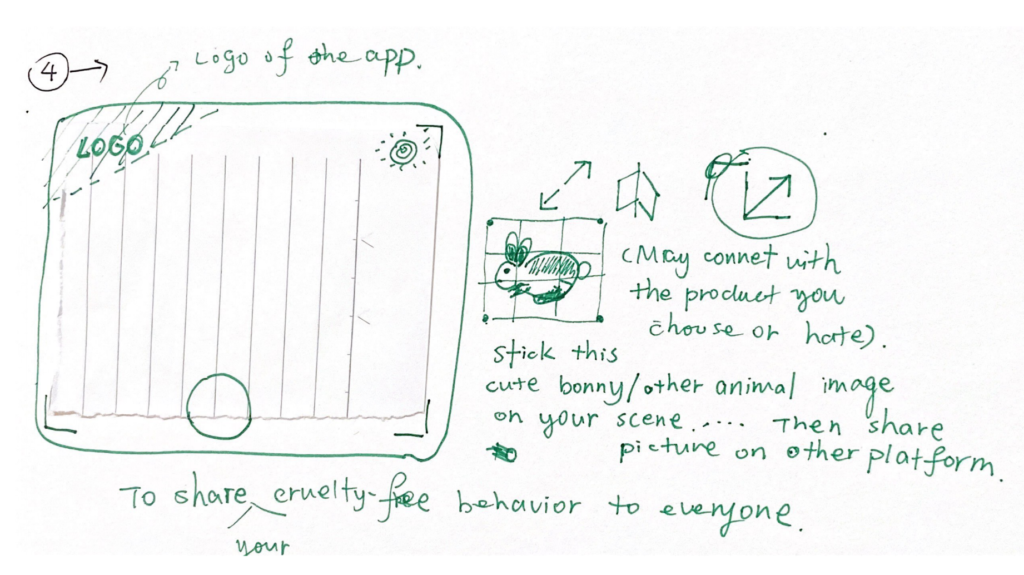 4
Logo of the app.
LOGO
(May connet with
the product you
choose or hate).
stick this
cute bonny/other animal image
on your scene..... Then share
picture on other platform.
To share cruelty-free behavior to everyone.
your